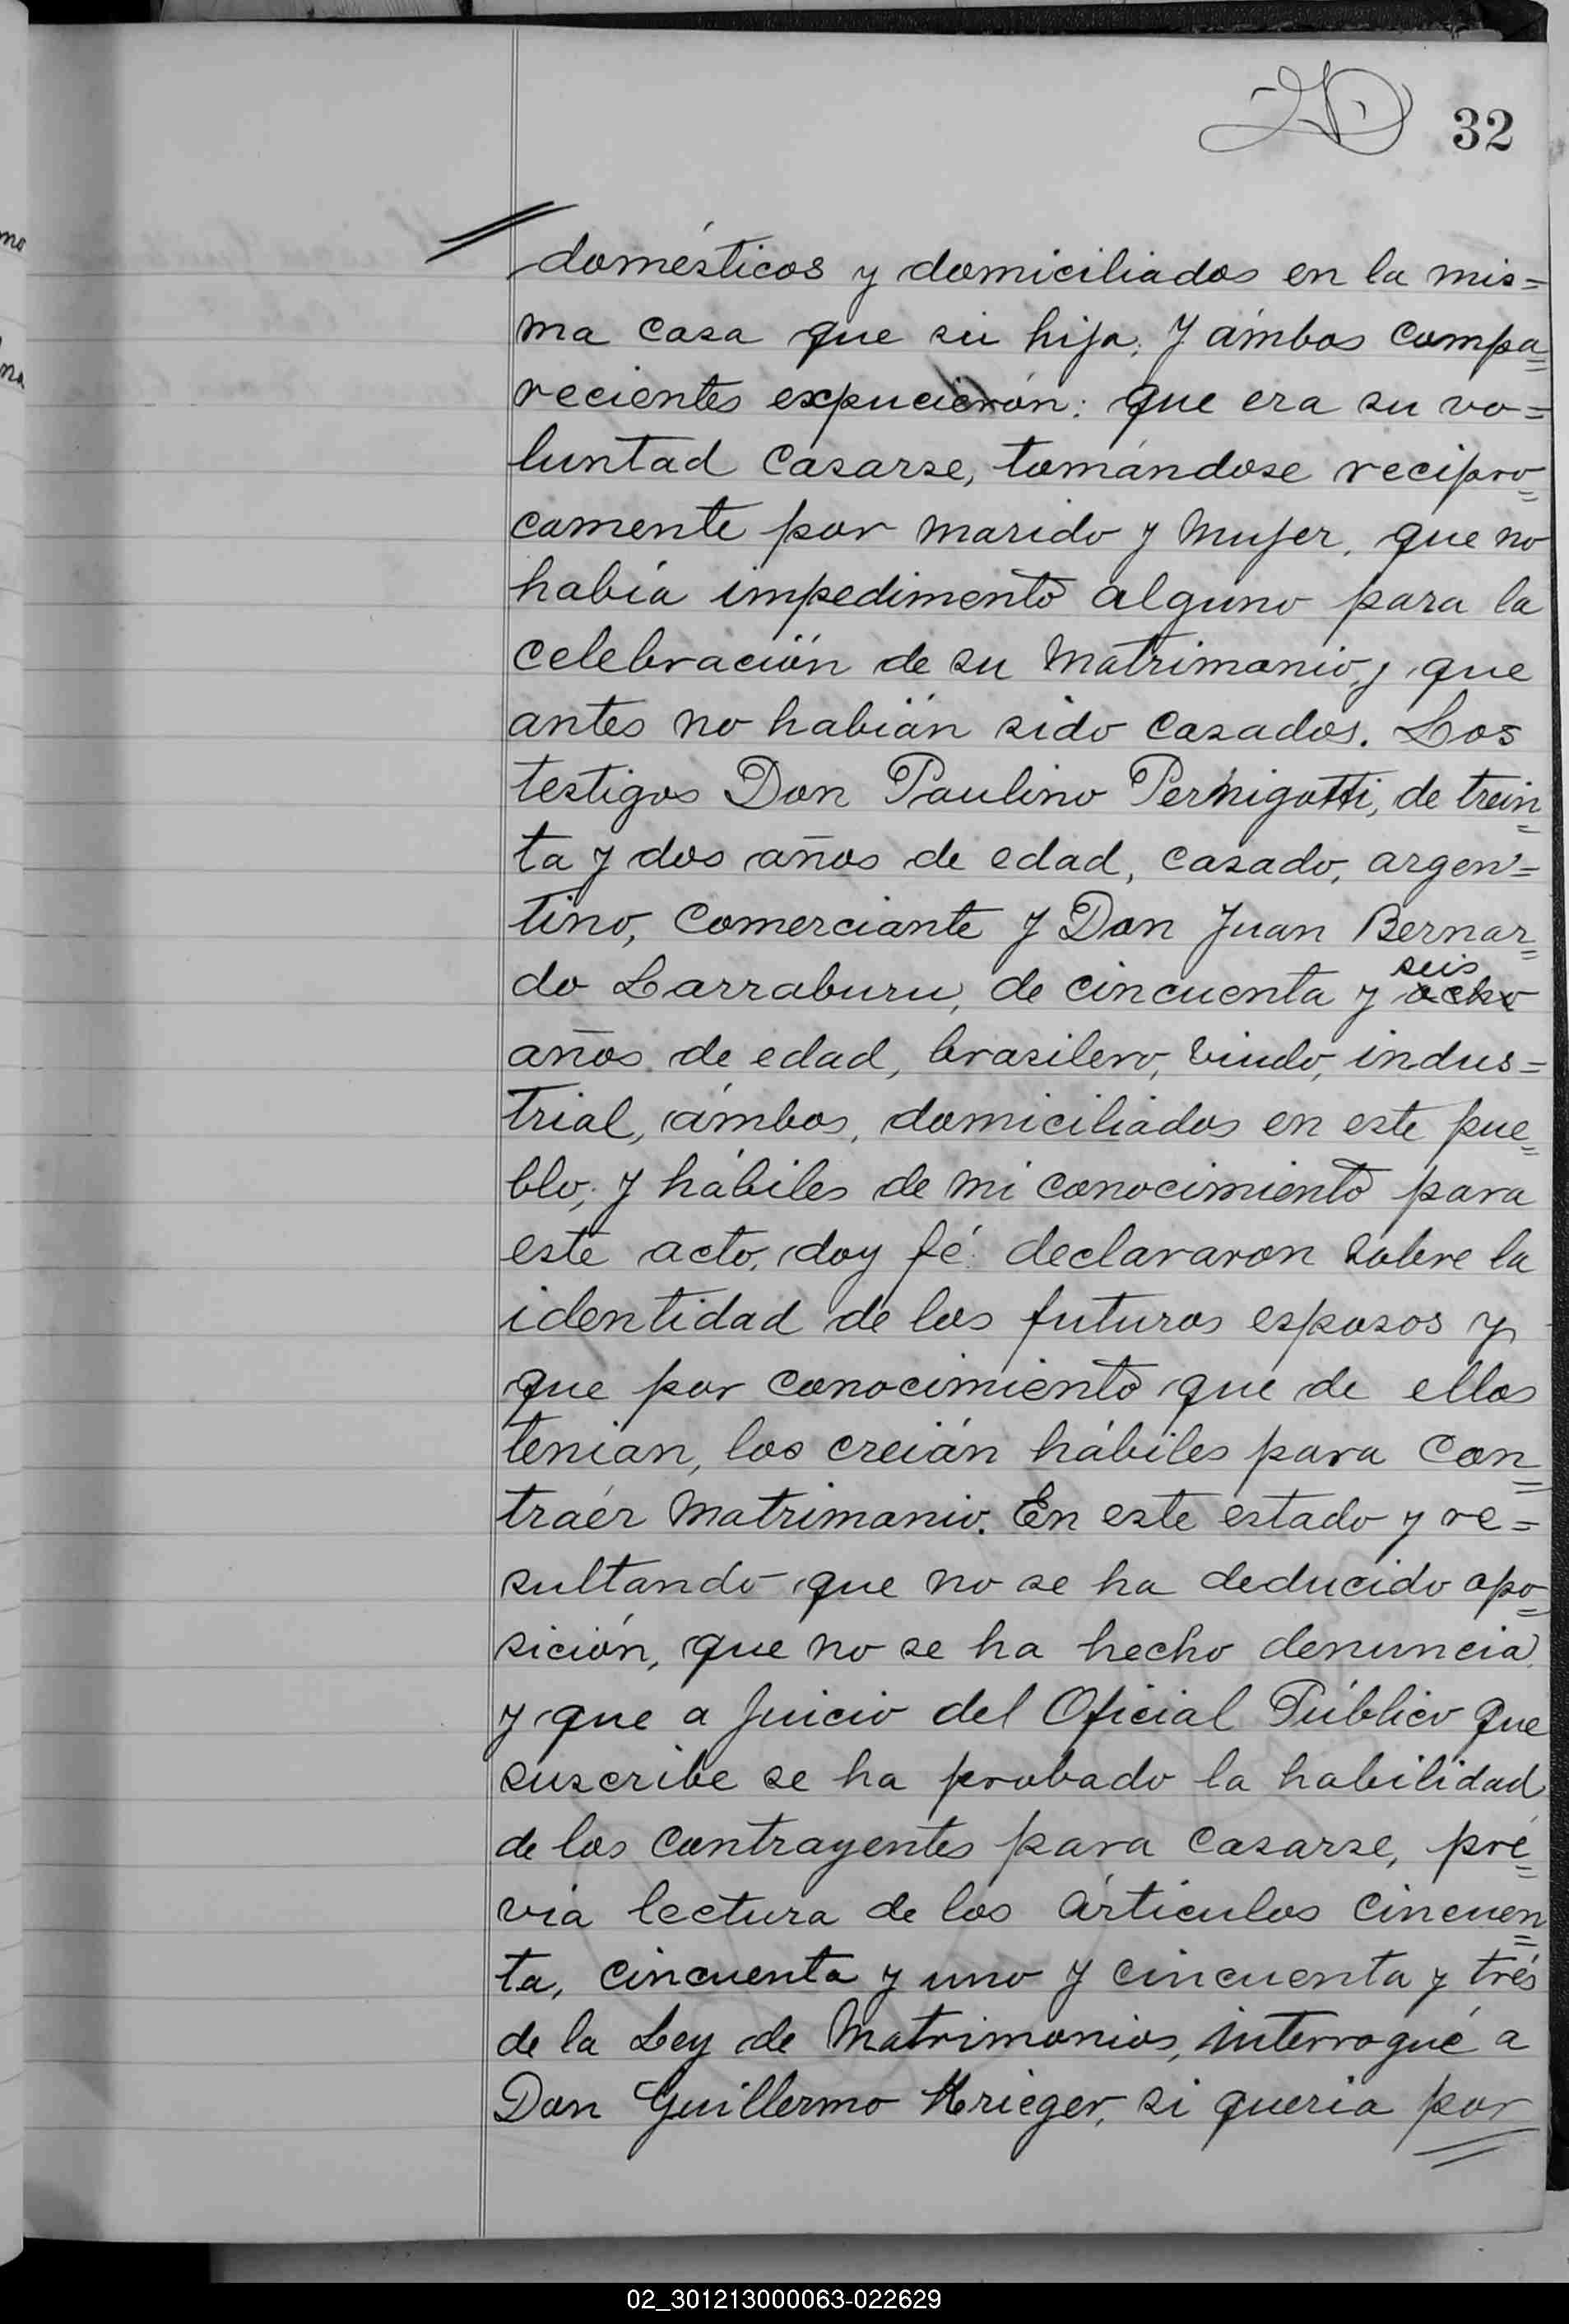 32
domésticos y domiciliados en la mis=
ma casa que su hija; y ámbos compa=
recientes expucierón: que era su vo=
luntad casarse, tomándose recipro=
camente por marido y mujer, que no
había impedimento alguno para la
celebración de su matrimonio, y que
antes no habián sido casados. Los
testigos Don Paulino Pernigotti, de trein=
ta y dos años de edad, casado, argen=
tino, comerciante y Don Juan Bernar=
seis
do Larraburu, de cincuenta y ocho
años de edad, brasilero, viudo, indus=
trial, ámbos, domiciliados en este pue=
blo; y hábiles de mi conocimiento para
este acto, doy fé: declararon sobre la
identidad de los futuros esposos y
que por conocimiento que de ellos
tenian, los creián hábiles para con=
traér matrimonio. En este estado y re=
sultando que no se ha deducido opo=
sición, que no se ha hecho denuncia
y que a juicio del Oficial Público que
suscribe se ha probado la habilidad
de los contrayentes para casarse, pré=
via lectura de los árticulos cincuen=
ta, cincuenta y uno y cincuenta y trés
de la Ley de Matrimonios, interrogué a
Don Guillermo Krieger, si queria por
02_301213000063-022629